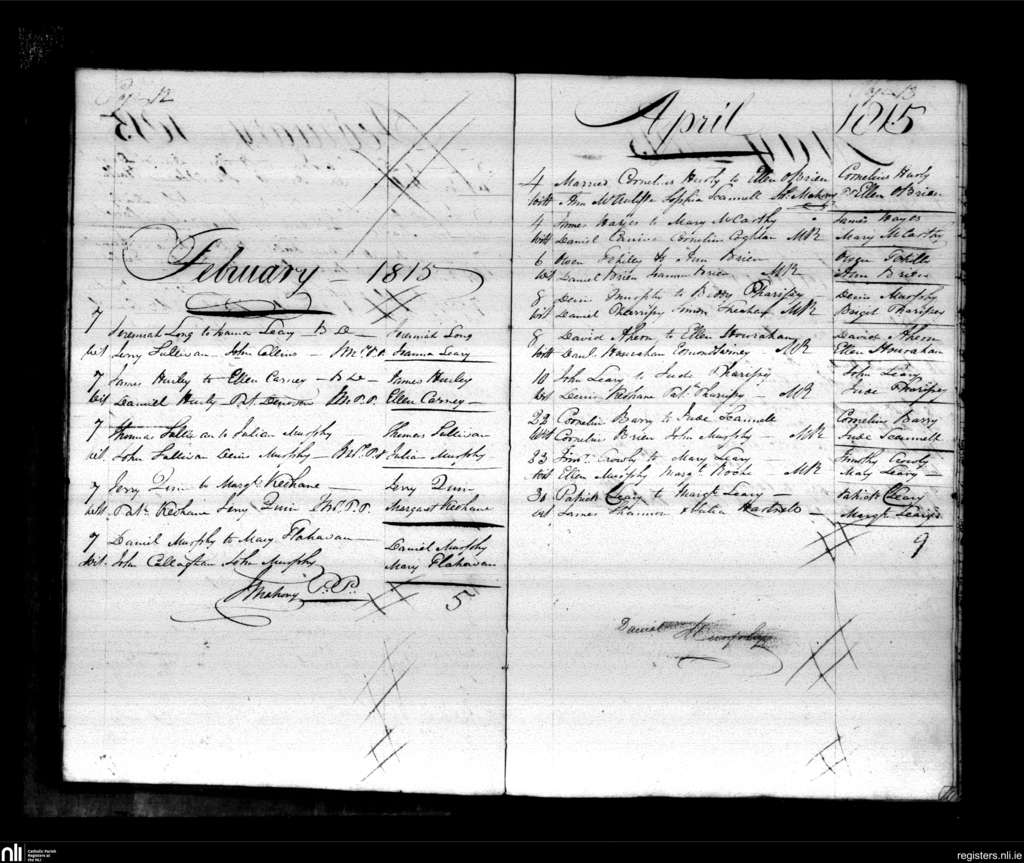 Page 12
February 1815
7
Jeremiah Long to Hanna Leary Jeremiah Long
wit Jerry Sullivan John Collins Hanna Leary
7 James Hurley to Ellen Carney James Hurley
wit Daniel Hurly Pat Ellen Carney
7 Thomas Sullivan to Julian Murphy Thomas Sullivan
wit. John Sullivan Denis Murphy Julian Murphy
7 Jerry Quin to Margt Keohane Jerry Quin
witt Patk Keohane Jerry Quin Margaret Keohane
7 Daniel Murphy to Mary Flahavan Daniel Murphy
wit. John Callaghan John Murphy Mary Flahavan
Mahony P.P. 5
Page 13
April 1815
4 Married Cornelius Hurly to Ellen OBrien Cornelius Hurly
witt Ann McAuliffe Sophia Scannell Mahony Ellen OBrien
4 James Hayes to Mary McCarthy James Hayes
witt Daniel Cornelius Coghlan MR Mary McCarthy
6 Owen to Ann Brien Owen
wit Daniel Brien Brien MR Ann Brien
8 Denis Murphy to Denis Murphy
wit Daniel MR Bridget
8 David Ahern to Ellen Hourahan David Ahern
witt Danl. Hanrahan MR Ellen Hourahan
10 John Leary to Jude John Leary
wit Denis Keohane Pat. MR Jude
22 Cornelius Barry to Jude Scannell Cornelius Barry
witt Cornelius Brien John Murphy MR Jude Scannell
23 Timt. Crowly to Mary Leary Timothy Crowly
wit Ellen Murphy Margt. Roche MR Mary Leary
30 Patrick Cleary to Margt Leary Patrick Cleary
wit James Shannon Julia Hartnett Margt Leary
9
Daniel Murphy
nli
Catholic Parish
Registers at
the NLI
registers.nli.ie